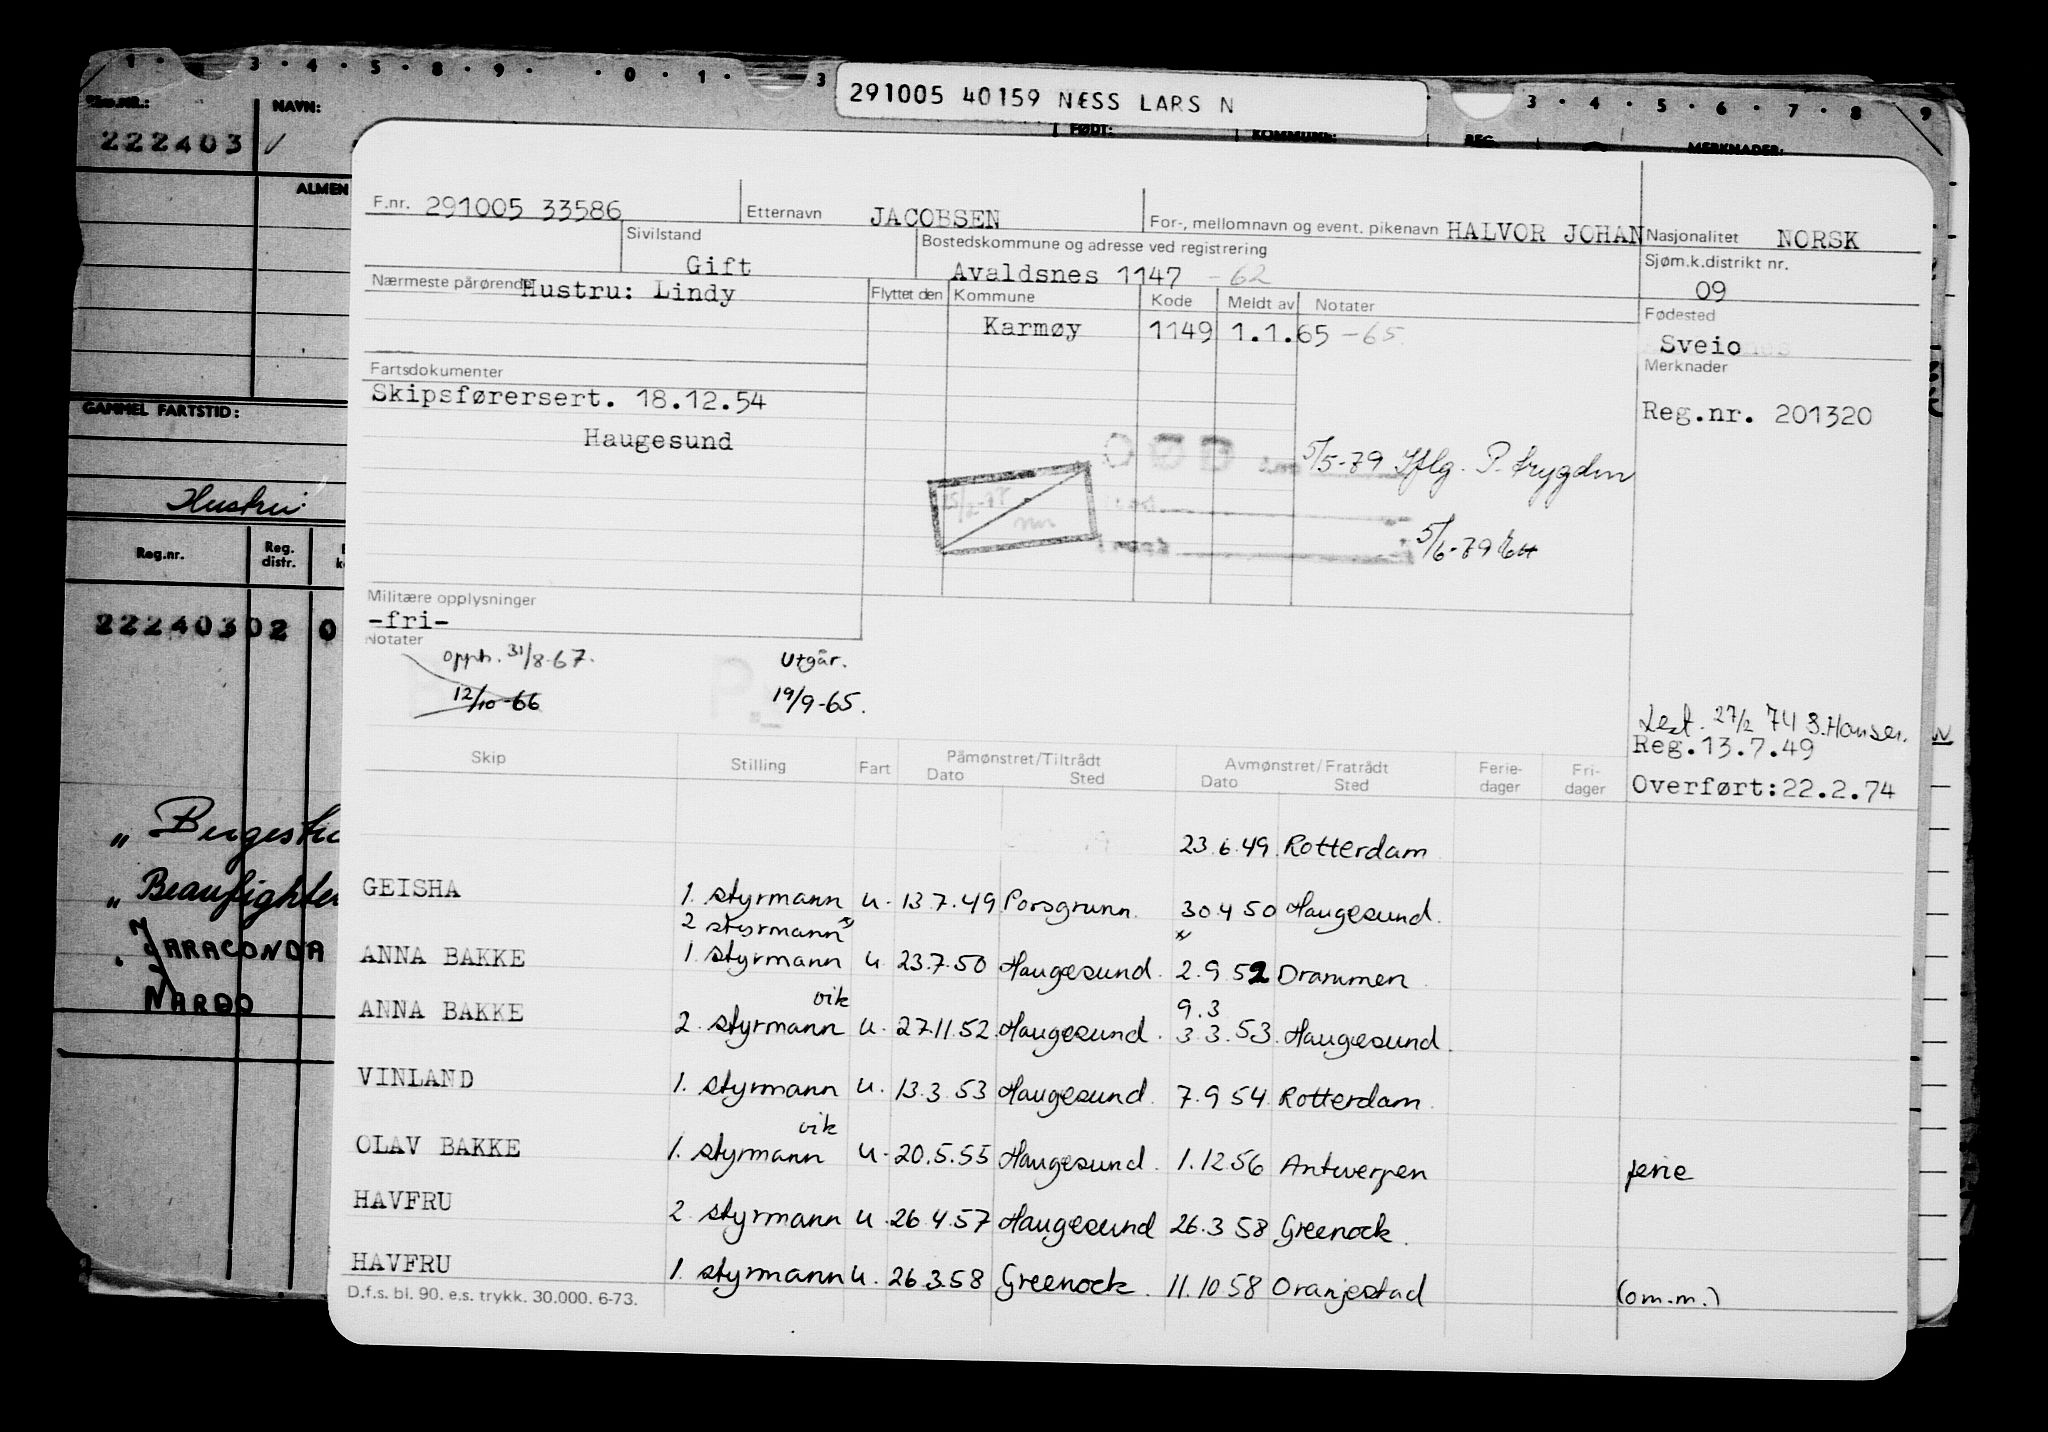 291005 40159 NESS LARS N
Fam.NR.: NAVN: FØDT: KOMMUNE: REG. MERKNADER:
222403
ALMEN
GAMMEL FARTSTID:
Hustru:
Reg.nr. Reg. distr.
22240302 0
" Bergesti
" Beaufighter
" JARACONDA
NARDO
F.nr. 291005 33586 Etternavn JACOBSEN For-, mellomnavn og event. pikenavn HALVOR JOHAN Nasjonalitet NORSK
Sivilstand Gift Bostedskommune og adresse ved registrering Avaldsnes 1147 -62 Sjøm.k.distrikt nr. 09
Nærmeste pårørende Hustru: Lindy Flyttet den Kommune Kode Meldt av Notater Fødested
Karmøy 1149 1.1.65 -65. Sveio
Merknader
Fartsdokumenter
Skipsførersert. 18.12.54 Reg.nr. 201320
Haugesund
DØD 5/5-79 Iflg. P. trygden
15/2-78
5/6-79
Militære opplysninger
-fri-
Notater
opph. 31/8-67. Utgår.
12/10-66 19/9-65.
Lest. 27/2 74 S.Hansen.
Reg.13.7.49
Overført:22.2.74
Skip Stilling Fart Påmønstret/Tiltrådt Dato Sted Avmønstret/Fratrådt Dato Sted Ferie-dager Fri-dager
23.6.49. Rotterdam
GEISHA 1. styrmann u. 13.7.49 Porsgrunn. 30.4 50 Haugesund.
2 styrmann x) x
ANNA BAKKE 1. styrmann u. 23.7.50 Haugesund. 2.9 52 Drammen.
vik 9.3
ANNA BAKKE 2. styrmann u. 27.11.52. Haugesund. 3.3.53. Haugesund.
VINLAND 1. styrmann u. 13.3.53 Haugesund. 7.9 54. Rotterdam.
vik
OLAV BAKKE 1. styrmann u. 20.5.55 Haugesund. 1.12 56 Antwerpen ferie
HAVFRU 2. styrmann u. 26.4.57 Haugesund 26.3 58 Greenock.
HAVFRU 1. styrmann u. 26.3.58 Greenock. 11.10 58 Oranjestad (om.m.)
D.f.s. bl. 90. e.s. trykk. 30.000. 6-73.